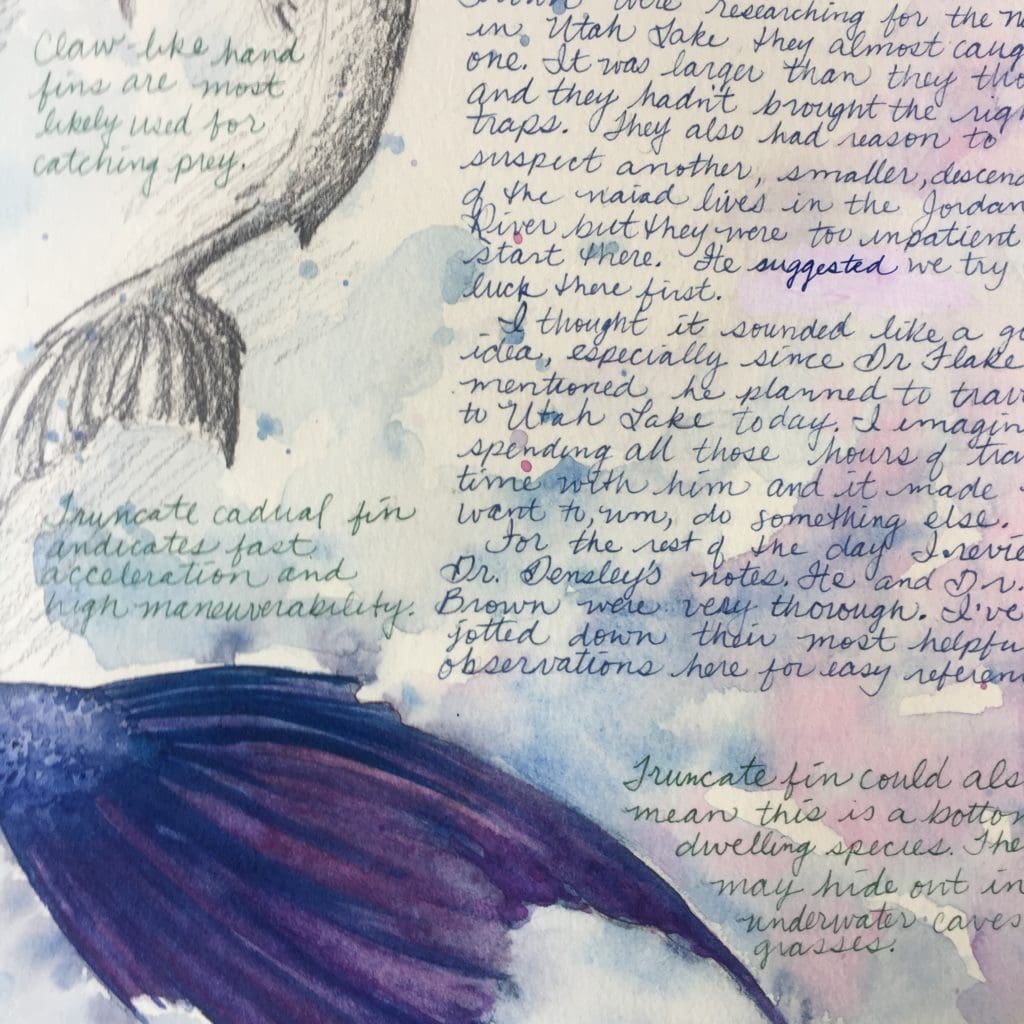 Claw-like hand
fins are most
likely used for
catching prey.
were researching for the
in Utah Lake they almost caug
one. It was larger than they tho
and they hadn't brought the righ
traps. They also had reason to
suspect another, smaller, descend
of the naiad lives in the Jordan
River but they were too inpatient
start there. He suggested we try
luck there first.
I thought it sounded like a go
idea, especially since Dr Flake
mentioned he planned to trav
to Utah Lake today. I imagin
spending all those hours of trav
time with him and it made
want to, um, do something else.
For the rest of the day I revie
Dr. Densley's notes. He and Dr.
Brown were very thorough. I've
jotted down their most helpfu
observations here for easy referen
Truncate cadual fin
indicates fast
acceleration and
high maneuverability.
Truncate fin could als
mean this is a bottom
dwelling species. The
may hide out in
underwater caves
grasses.